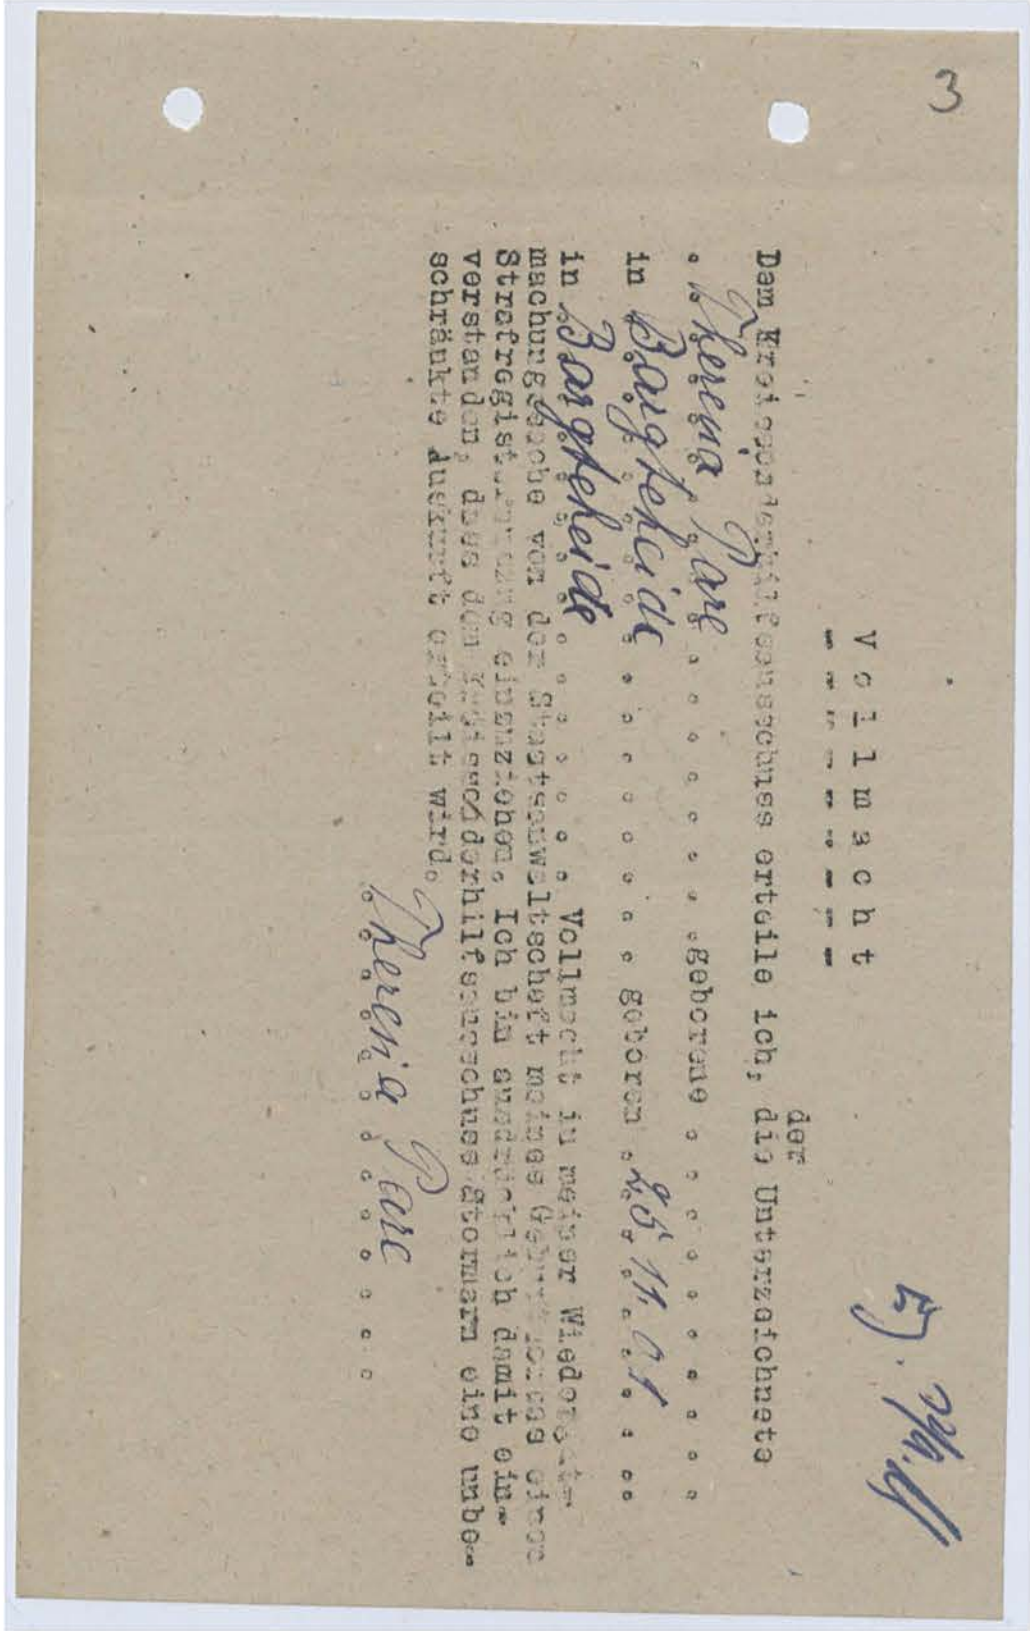 3
V o l l m a c h t
der
Dem Kreissonderhilfsausschuss erteile ich, die Unterzeichnete
. Theresia Pare . . . . . . . geborene . . . . . . . . . .
in Bargteheide . . . . . . . . . geboren . 25. 11. 01 . . . .
in Bargteheide . . . . . . . Vollmacht in meiner Wiedergut-
machungssache von der Staatsanwaltschaft meines Geburtsortes einen
Strafregisterauszug einzuziehen. Ich bin ausdrücklich damit ein-
verstanden, dass dem Kreissonderhilfsausschuss Stormarn eine unbe-
schränkte Auskunft erteilt wird.
Theresia Pare